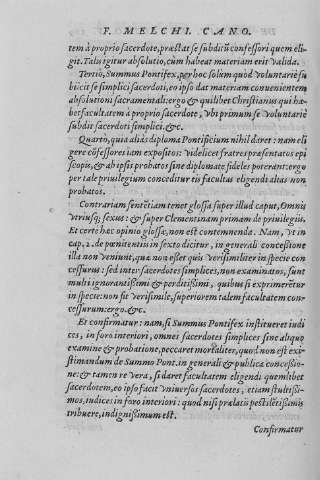 F. MELCHI. CANO.
tem à proprio sacerdote, præstat se subditũ confessori quem eli-
git. Talu igitur absolutio, cùm habeat materiam erit valida.
Tertiò, Summus Pontifex, per hoc solùm quòd voluntariè su
biicit se simplici sacerdoti, eo ipso dat materiam conuenientem
absolutioni sacramentali: ergo & quilibet Christianus qui ha-
bet facultatem à proprio sacerdote, vbi primum se voluntariè
subdit sacerdoti simplici. &c.
Quartò, quia aliâs diploma Pontificium nihil daret: nam eli
gere cõfessores iam expositos: videlicet fratres præsentatos epi
scopis, & ab ipsis probatos sine diplomate fideles poterant: ergo
per tale priuilegium conceditur eis facultas eligendi alias non
probatos.
Contrariam sentẽtiam tenet glossa super illud caput, Omnis
vtriusq; sexus: & super Clementinam primam de priuilegiis.
Et certè hæc opinio glossæ, non est contemnenda. Nam, vt in
cap. 2. de pœnitentiis in sexto dicitur, in generali concessione
illa non veniunt, quæ non esset quis verisimiliter in specie con
cessurus: sed inter sacerdotes simplices, non examinatos, sunt
multi ignorantissimi & perditissimi, quibus si exprimerẽtur
in specie: non fit verisimile, superiorem talem facultatem con-
cessurum: ergo. &c.
Et confirmatur: nam, si Summus Pontifex institueret iudi
ces, in foro interiori, omnes sacerdotes simplices sine aliquo
examine & probatione, peccaret mortaliter, quod non est exi-
stimandum de Summo Pont. in generali & publica concessio-
ne: & tamen re vera, si daret facultatem eligendi quemlibet
sacerdotem, eo ipso facit vniuersos sacerdotes, etiam stultissi-
mos, iudices in foro interiori: quod nisi prælatis pestilẽtissimis
tribuere, indignissimum est.
Confirmatur